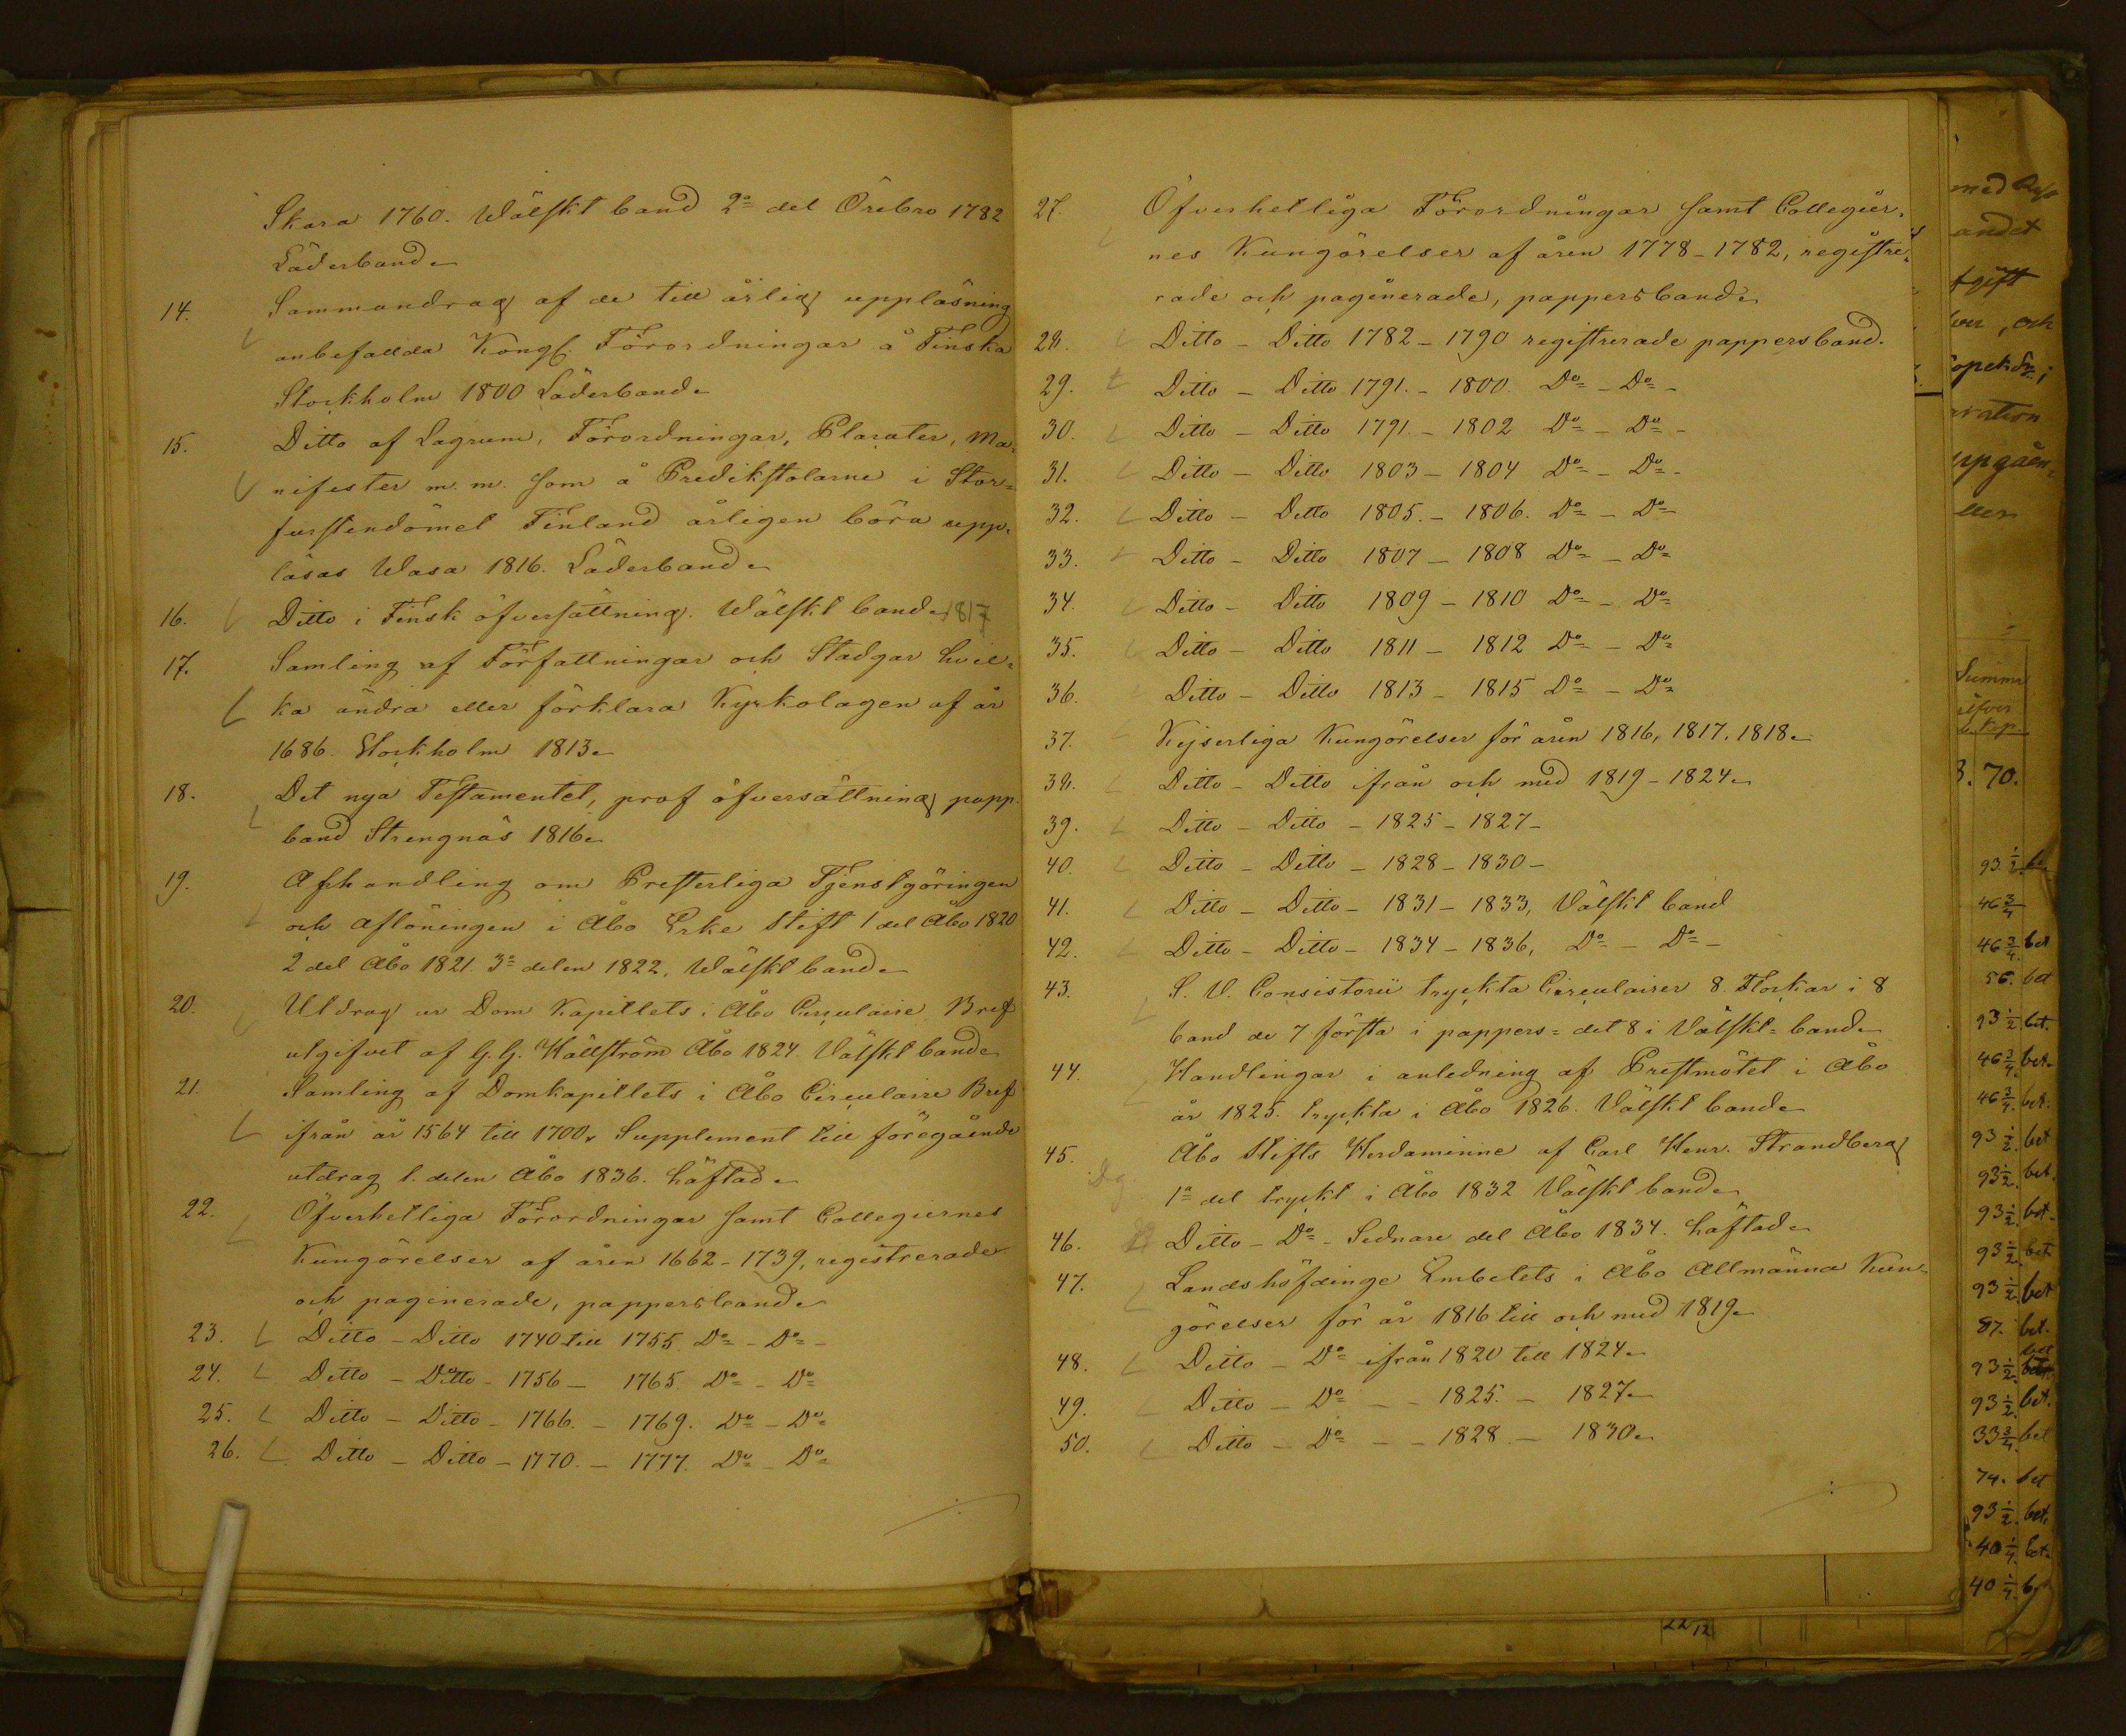 Skara 1760. Wälskt band 2ª del Örebro 1782
Läderband.
14. Sammandrag af de till årlig uppläsning
anbefallda Kongl. Förordningar å Finska
Stockholm 1800 Läderband.
15. Ditto af Lagrum, Förordningar, Placater, Ma=
nifester m. m. som å Predikstolarne i Stor=
furstendömet Finland årligen böra upp=
läsas Wasa 1816. Läderband.
16. Ditto i Finsk öfversättning. Wälskt band. 1817
17. Samling af Författningar och Stadgar hvil=
ka ändra eller förklara Kyrkolagen af år
1686. Stockholm 1813.
18. Det nya Testamentet, prof öfversättning papp.
band Strengnäs 1816.
19. Afhandling om Presterliga Tjenstgöringen
och aflöningen i Åbo Erke Stift 1 del Åbo 1820
2 del Åbo 1821. 3ª delen 1822. Wälskt band.
20. Utdrag ur Dom Kapitlets i Åbo Circulaire Bref
utgifvet af G. G. Hällström Åbo 1824. Välskt band.
21. Samling af Domkapitlets i Åbo Circulaire Bref
ifrån år 1564 till 1700, Supplement till föregående
utdrag 1. delen Åbo 1836. häftad.
22. Öfverhetliga Förordningar samt Collegiernes
Kungörelser af åren 1662-1739, registrerade
och paginerade, pappersband.
23. Ditto - Ditto 1740 till 1755. Dº - Dº -
24. Ditto - Ditto - 1756 - 1765. Dº - Dº
25. Ditto - Ditto - 1766. - 1769. Dº - Dº
26. Ditto - Ditto - 1770. - 1777. Dº - Dº
27. Öfverhetliga Förordningar samt Collegier=
nes Kungörelser af åren 1778-1782, registre=
rade och paginerade, pappersband.
28. Ditto - Ditto 1782-1790 registrerade pappersband.
29. Ditto - Ditto 1791. - 1800. Dº - Dº -
30. Ditto - Ditto 1791. - 1802 Dº - Dº -
31. Ditto - Ditto 1803 - 1804 Dº - Dº -
32. Ditto - Ditto 1805. - 1806. Dº - Dº
33. Ditto - Ditto 1807 - 1808 Dº - Dº
34. Ditto - Ditto 1809 - 1810 Dº - Dº
35. Ditto - Ditto 1811 - 1812 Dº - Dº
36. Ditto - Ditto 1813 - 1815 Dº - Dº
37. Kejserliga Kungörelser för åren 1816, 1817. 1818.
38. Ditto - Ditto ifrån och med 1819-1824.
39. Ditto - Ditto - 1825-1827-
40. Ditto - Ditto - 1828-1830-
41. Ditto - Ditto - 1831-1833, Välskt band
42. Ditto - Ditto - 1834-1836, Dº - Dº -
43. S. V. Consistorii tryckta Circulairer 8. Flockar i 8
band de 7 första i pappers= det 8 i Välskt= band.
44. Handlingar i anledning af Prestmötet i Åbo
år 1825. tryckta i Åbo 1826. Välskt band.
45. Åbo Stifts Herdaminne af Carl Henr. Strandberg
1ª del tryckt i Åbo 1832 Välskt band.
46. Ditto - Dº - Sednare del Åbo 1834. häftad.
47. Landshöfdinge Embetets i Åbo Allmänna Kun=
görelser för år 1816 till och med 1819.
48. Ditto - Dº ifrån 1820 till 1824.
49. Ditto - Dº - - 1825. - 1827.
50. Ditto - Dº - - 1828 - 1830.
med
andet
och
Summa
70.
93 1/2
46 3/4
46 3/4. bet
56. bet
93 1/2 bet.
46 3/4. bet.
46 3/4. bet.
93 1/2. bet
93 1/2. bet.
93 1/2. bet.
93 1/2. bet
93 1/2. bet
87. bet.
93 1/2. bet
93 1/2. bet.
33 3/4. bet
74. bet
93 1/2. bet.
40 1/4. bet.
40 1/4.
22/12